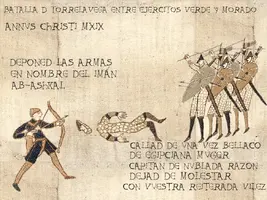 BATALLA D TORRELAVEGA ENTRE EJERCITOS VERDE Y MORADO
ANNVS CHRISTI MXIX
DEPONED LAS ARMAS
EN NOMBRE DEL IMÁN
AB-ASHXAL
CALLAD DE VNA VEZ BELLACO
DE EGIPCIANA MVGER
CAPITAN DE NVBLADA RAZON
DEJAD DE MOLESTAR
CON VVESTRA REITERADA VILEZ